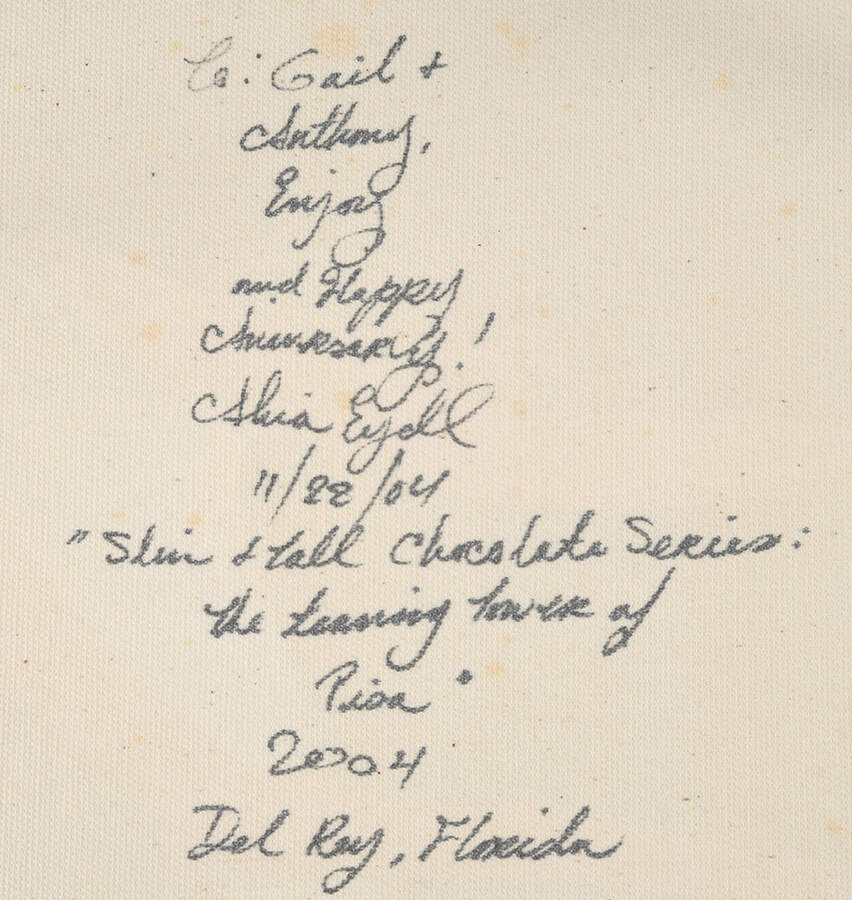 To: Gail &
Anthony,
Enjoy
and Happy
Aniversary!
11/22/04
"Slim & tall Chocolate Series:
the Leaning tower of
Pisa"
2004
Del Ray, Florida